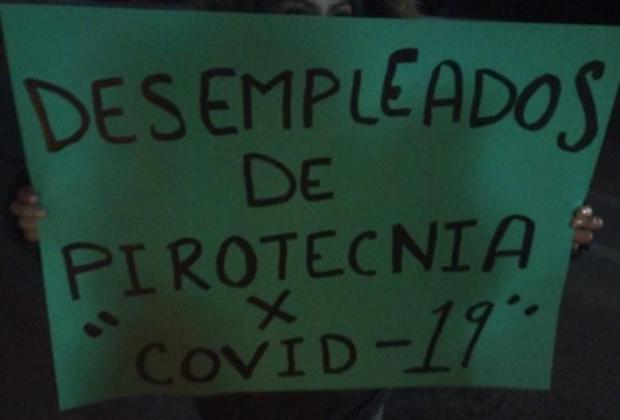 DESEMPLEADOS
DE
PIROTECNIA
X
"COVID-19"